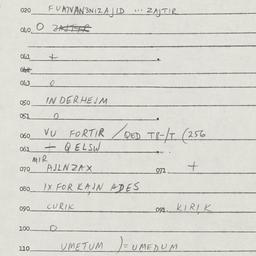 020 FUAIVANBNIZAJID ... ZAJTIR
040 O ZAJTIR
041 +
042
043 O
050 INDERHEIM
051 O
060 VU FORTIR / QED T8-/T (256
061 + QELSW
MIR
070 AJLNZAX 071 +
080 IXFORKAJN ADES
090 CURIK 091 KIRIK
100 O
110 UMETUM ) = UMEDUM